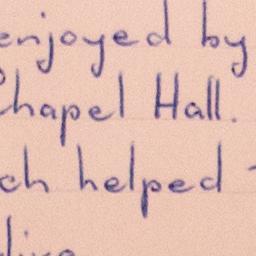 enjoyed by
Chapel Hall.
ch helped